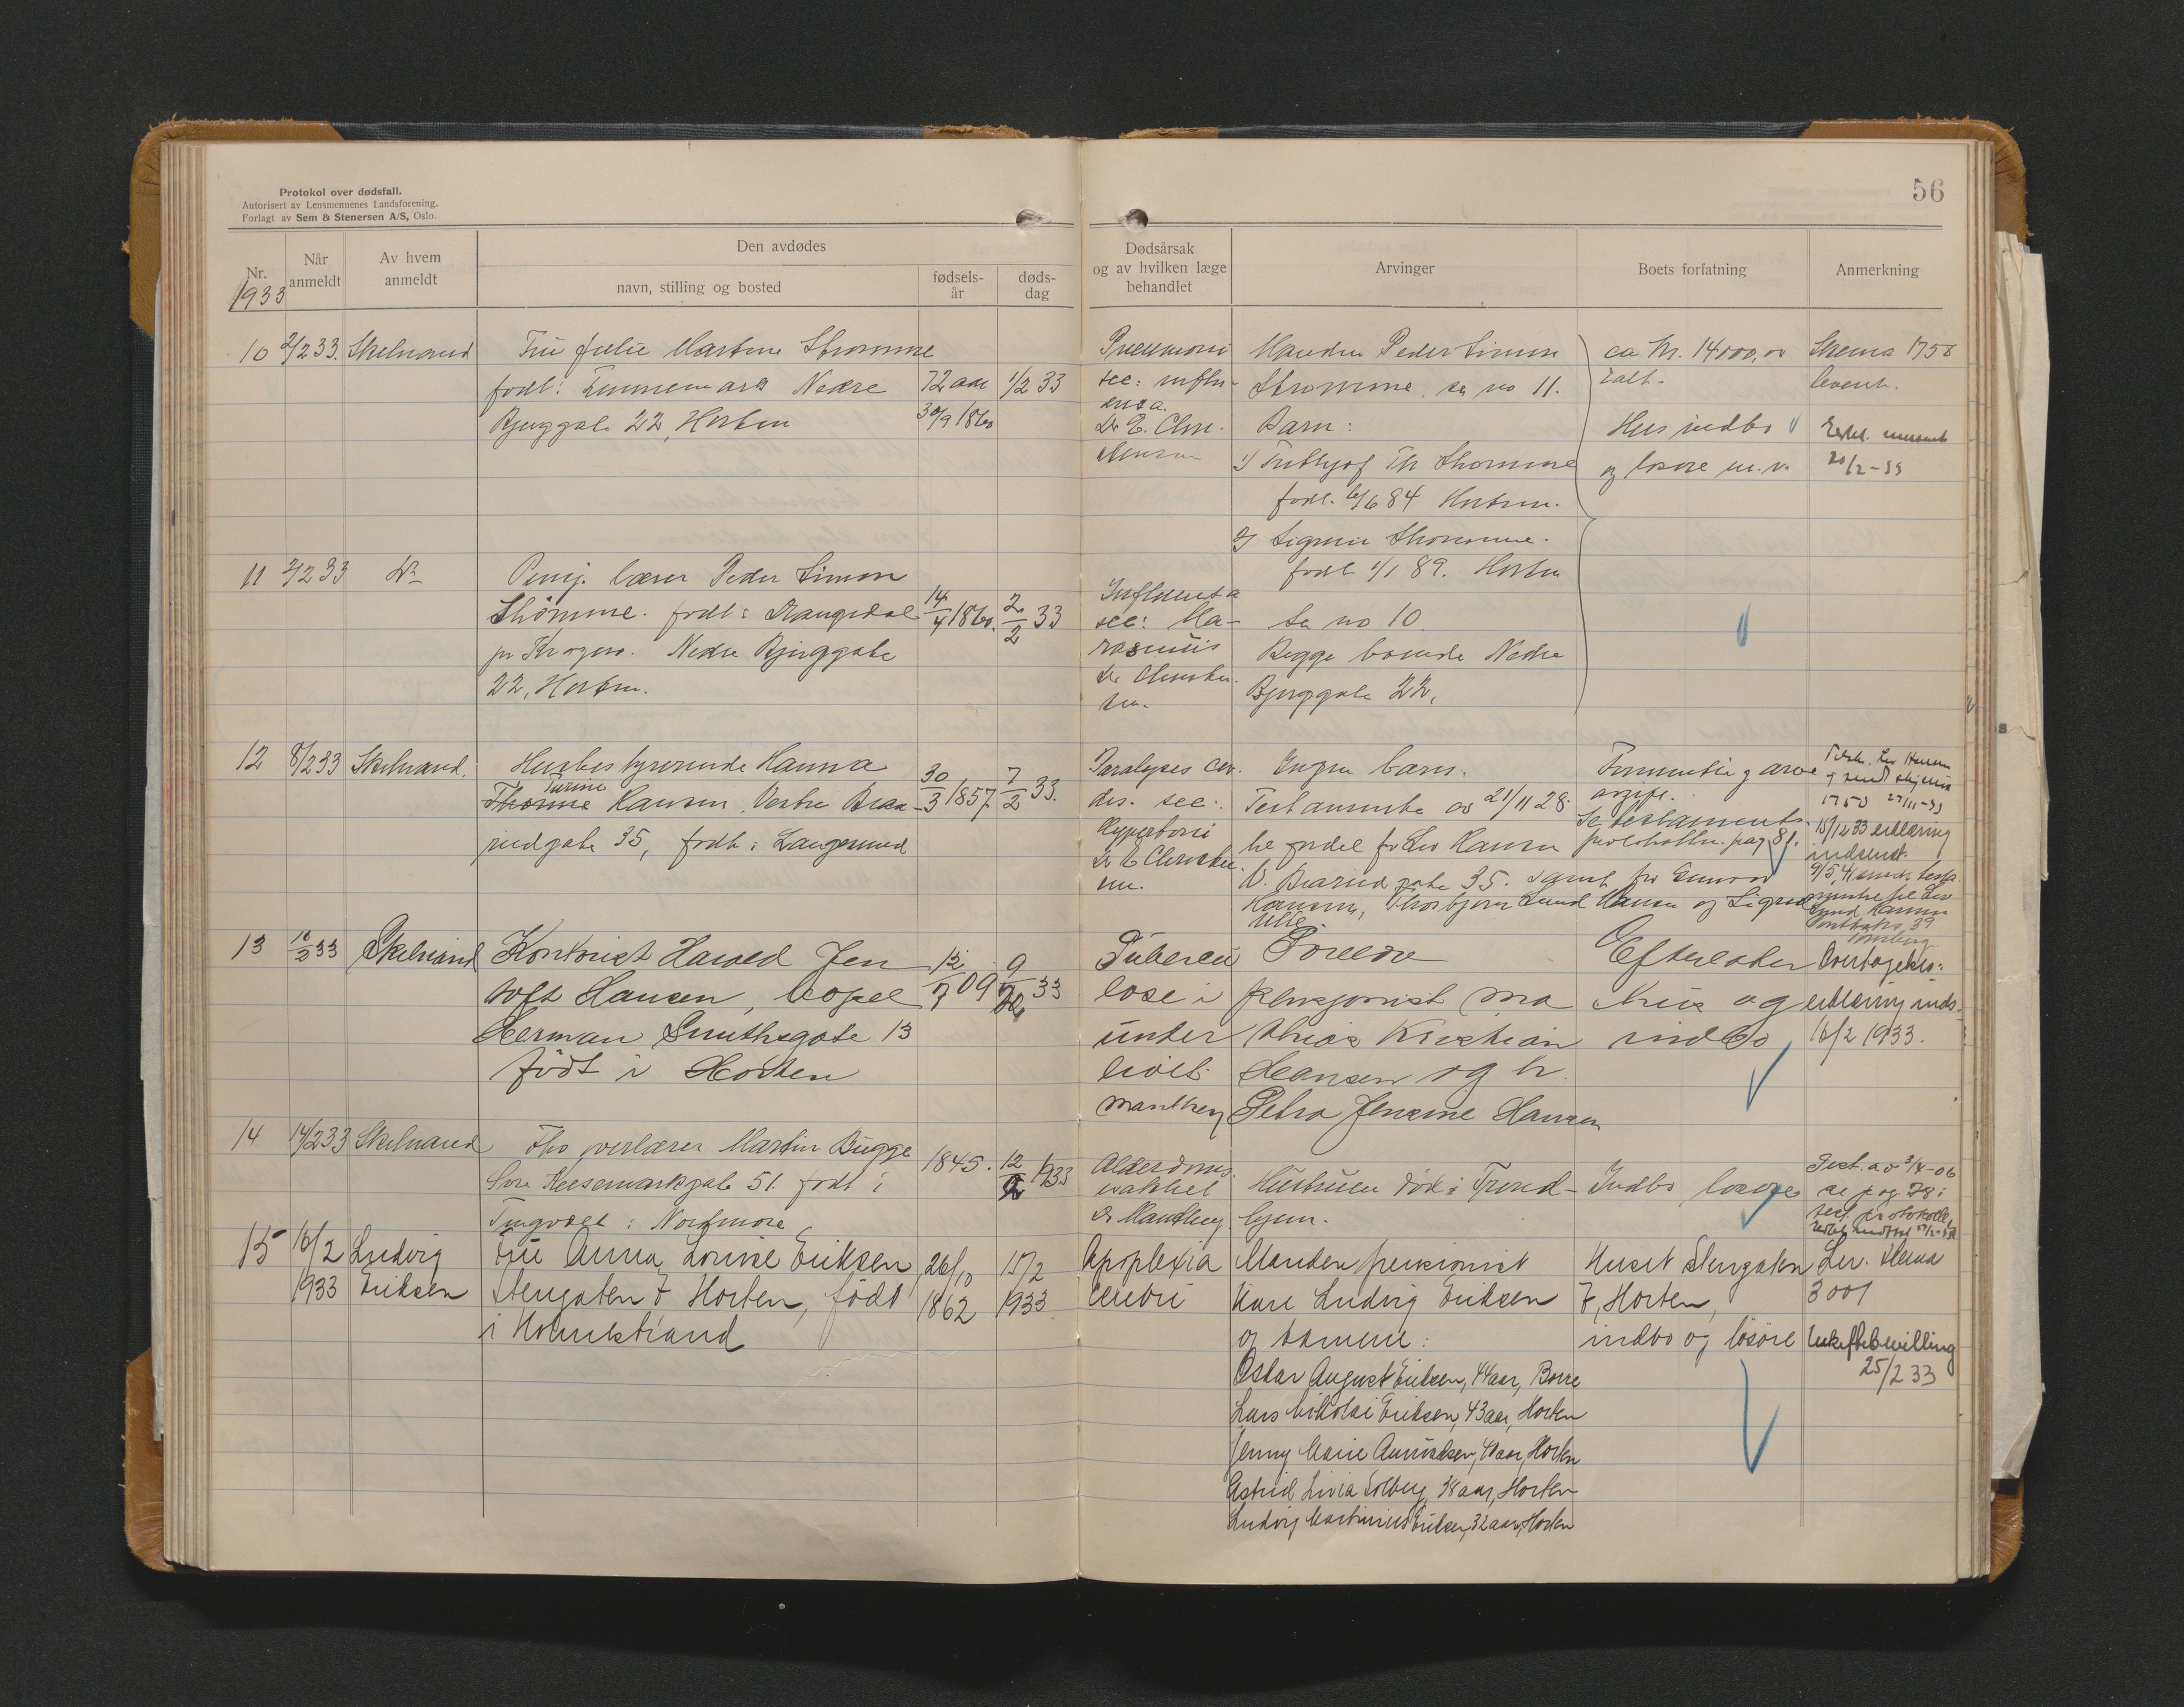 Protokol over dødsfall.
Autorisert av Lensmennenes Landsforening.
Forlagt av Sem & Stenersen A/S, Oslo.
56
Nr.
1933
Når
anmeldt
Av hvem
anmeldt
Den avdødes
navn, stilling og bosted
fødsels-
år
døds-
dag
Dødsårsak
og av hvilken læge
behandlet
Arvinger
Boets forfatning
Anmerkning
10 2/2 33. Skelnand
Fru Julie Martine Strømme
født: Nedre
Bjerggate 22, Horten
72 aar
30/9 1860
1/2 33
Pneumoni
sec: influ-
ensa.
Dr E. Chri-
stensen
Manden Peder Simon
Strømme, se no 11.
Barn:
1) Fridtjof Th Strømme
født. 6/6 84 Horten.
2) Strømme.
født 1/1 89. Horten
ca Kr. 14000,00
talt.
Hus indbo
og løsøre m.v.
Skema 1758
levert.
20/2-33
11 2/2 33 Do
Pensj. lærer Peder Simon
Strømme. født: Drangedal
pr Kragerø. Nedre Bjerggate
22, Horten.
14/4 1860.
2/2 33
Influensa
sec: Ma-
rasmus
Dr Christen-
sen.
Se no 10.
Begge boende Nedre
Bjerggate 22,
12 8/2 33 Skelnand.
Husbestyrerinde Hanna
Turine
Hansen, Vestre Braa-
rudgate 35, født i Langesund
30/3 1857
7/2 33.
Paralyses cor-
dis. sec:
Hypertoni
Dr E Christen-
sen.
Ingen barn.
Testamente av 21/11 28.
til fordel for Leo Hansen
V. Braarudgate 35. samt for
Hansen, Thorbjørn Lund Hansen og Sigrid
Formentlig arve
avgift.
Se testaments-
protokollen. pag 81.
1750 27/11-33
15/12 33 erklæring
indsendt.
Lund Hansen
Tønsberg
13 10/2 33 Skelnand
Kontorist Harald Jen
toft Hansen, Copel
Herman Smithsgate 13
født i Horten
12/7 09
9/2 33
Tubercu
lose i
under
livet.
Manthey
Foreldre
pensjonist Ma
thias Kristian
Hansen og h.
Petra Jensine Hansen
Efterlater
hus og
indbo
Overtagelses-
erklæring inds.
16/2 1933.
14 14/2 33 Skelnand
Fhv overlærer Martin Bugge
51. født i
Tingvold i Nordmøre
1845.
12/2 1933
Alderdoms
svakhet
Dr Manthey
Hustruen død i Trond-
hjem.
Indbo løsøre
Test. av 3/4-06
se pag. 78 i
test. protokolle
15 16/2 Ludvig
1933 Eriksen
Fru Anna Lovise Eriksen
Stengaten 7 Horten, født
i Holmestrand
26/10
1862
15/2
1933
Apoplexia
cerebri
Manden pensionist
Karl Ludvig Eriksen
og barnene:
Oskar August Eriksen, 44 aar, Borre
Lars Nikolai Eriksen, 43 aar, Horten
Jenny Marie Amundsen, 40 aar, Horten
Astrid Livia Solberg, 38 aar, Horten
Ludvig Martinius Eriksen, 32 aar, Horten
Huset Stengaten
7, Horten,
indbo og løsøre
Lev. skema
3001
Uskiftebevilling
25/2 33